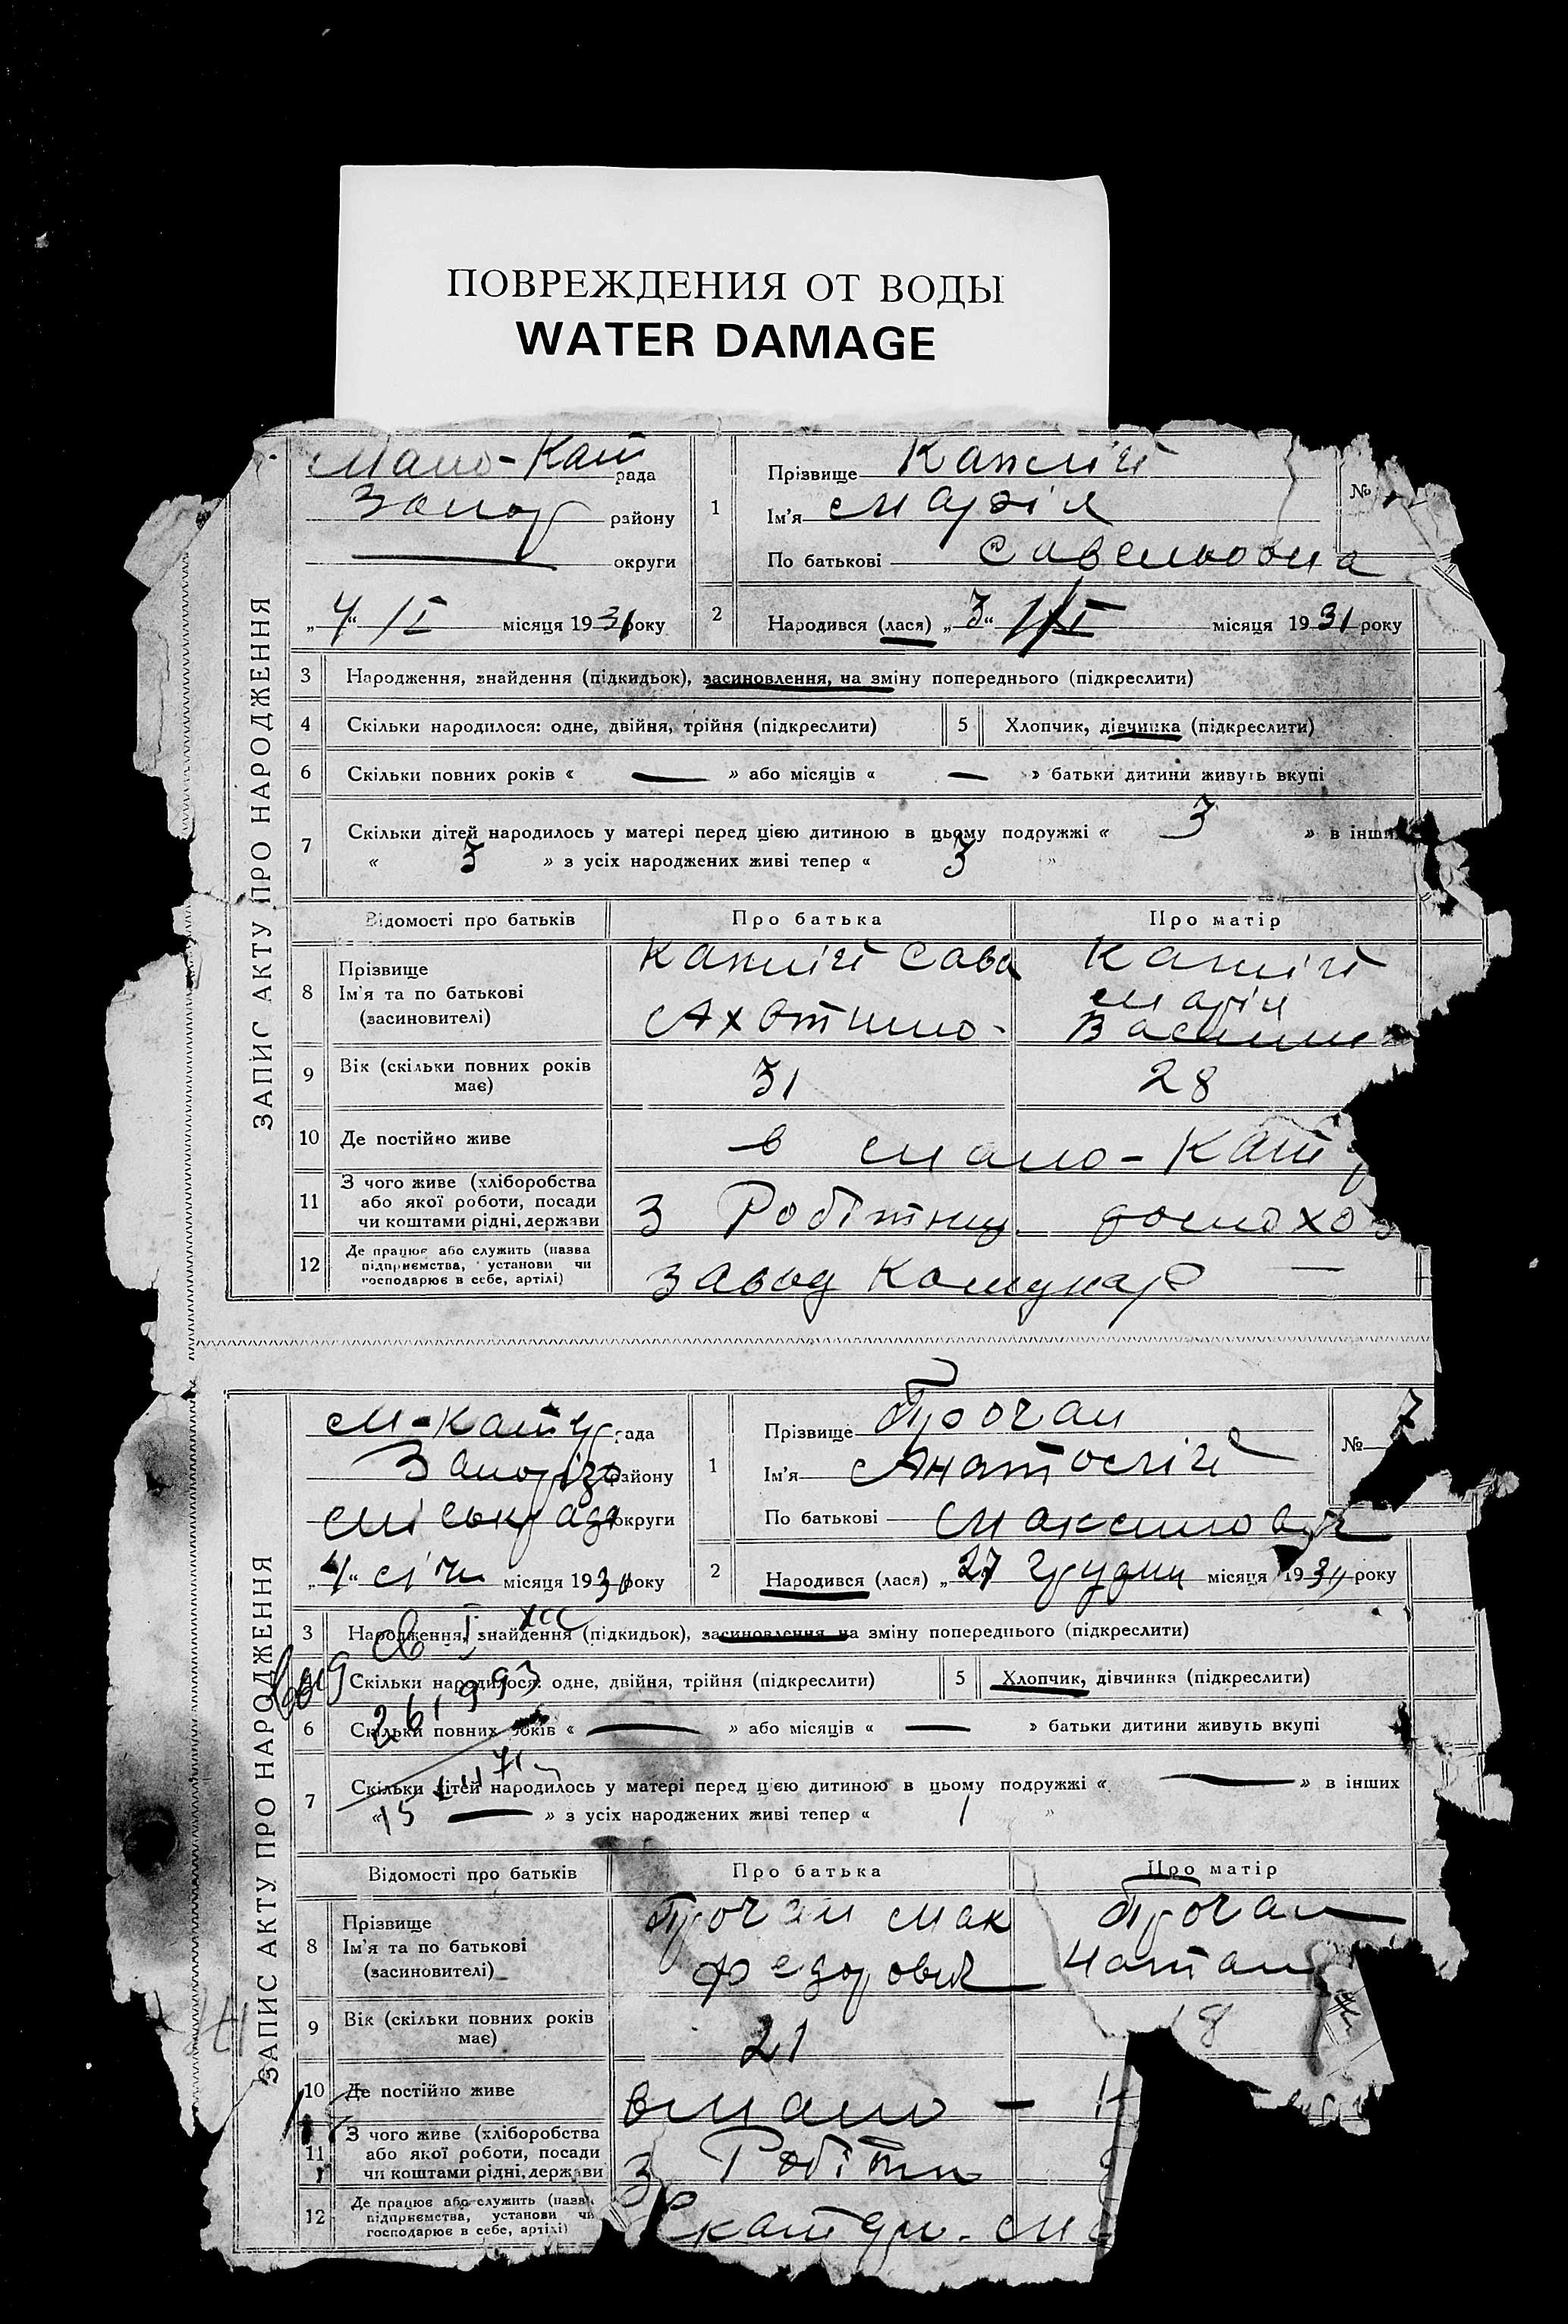 ПОВРЕЖДЕНИЯ ОТ ВОДЫ
WATER DAMAGE
ЗАПИС АКТУ ПРО НАРОДЖЕННЯ
Мало-Кат рада
Запор району
округи
„4“ /I місяця 1931 року
1
Прізвище
Ім'я Марія
По батькові Савельовна
№
2
Народився (лася) „3“ I місяця 1931 року
3 Народження, знайдення (підкидьок), засиновлення, на зміну попереднього (підкреслити)
4 Скільки народилося: одне, двійня, трійня (підкреслити)
5 Хлопчик, дівчинка (підкреслити)
6 Скільки повних років « — » або місяців « — » батьки дитини живуть вкупі
7 Скільки дітей народилось у матері перед цією дитиною в цьому подружжі « 3 » в інших
« 3 » з усіх народжених живі тепер « 3 »
Відомості про батьків Про батька Про матір
8 Прізвище
Ім'я та по батькові
(засиновителі)
Сава
Марія
9 Вік (скільки повних років має)
31 28
10 Де постійно живе
в Мало-Кат
11 З чого живе (хліборобства
або якої роботи, посади
чи коштами рідні, держави
З Робітниц
12 Де працює або служить (назва
підприємства, установи чи
господарює в себе, артілі)
завод Комунар —
ЗАПИС АКТУ ПРО НАРОДЖЕННЯ
М-Катер рада
Запорізо району
Міськрада округи
„4“ січн місяця 1931 року
1
Прізвище Прочан
Ім'я Анатолій
По батькові Максимович
№ 7
2
Народився (лася) „27 грудня місяця 193 року
3 Народження, знайдення (підкидьок), засиновлення на зміну попереднього (підкреслити)
Скільки народилося: одне, двійня, трійня (підкреслити)
5 Хлопчик, дівчинка (підкреслити)
6 Скільки повних років « — » або місяців « — » батьки дитини живуть вкупі
7 Скільки дітей народилось у матері перед цією дитиною в цьому подружжі « — » в інших
« — » з усіх народжених живі тепер « 1 »
Відомості про батьків Про батька Про матір
8 Прізвище
Ім'я та по батькові
(засиновителі)
Прочан Мак
Федорович
Прочан
Натал
9 Вік (скільки повних років має)
21 18
10 Де постійно живе
в Мало -
11 З чого живе (хліборобства
або якої роботи, посади
чи коштами рідні, держави
З Робітн
12 Де працює або служить (назва
підприємства, установи чи
господарює в себе, артілі)